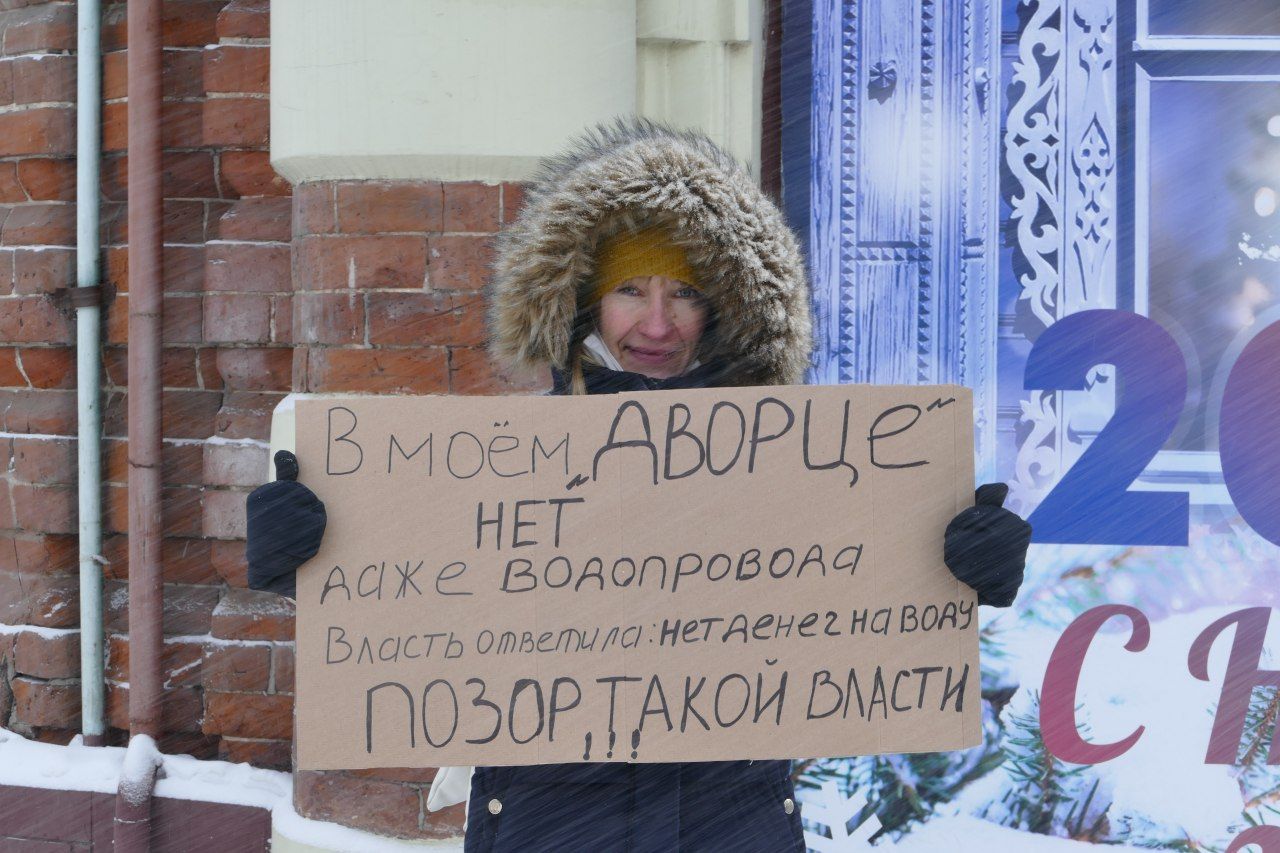 В моём „ДВОРЦЕ"
НЕТ
даже ВОДОПРОВОДА
Власть ответила: нет денег на воду
ПОЗОР ТАКОЙ ВЛАСТИ
!!!
2
С